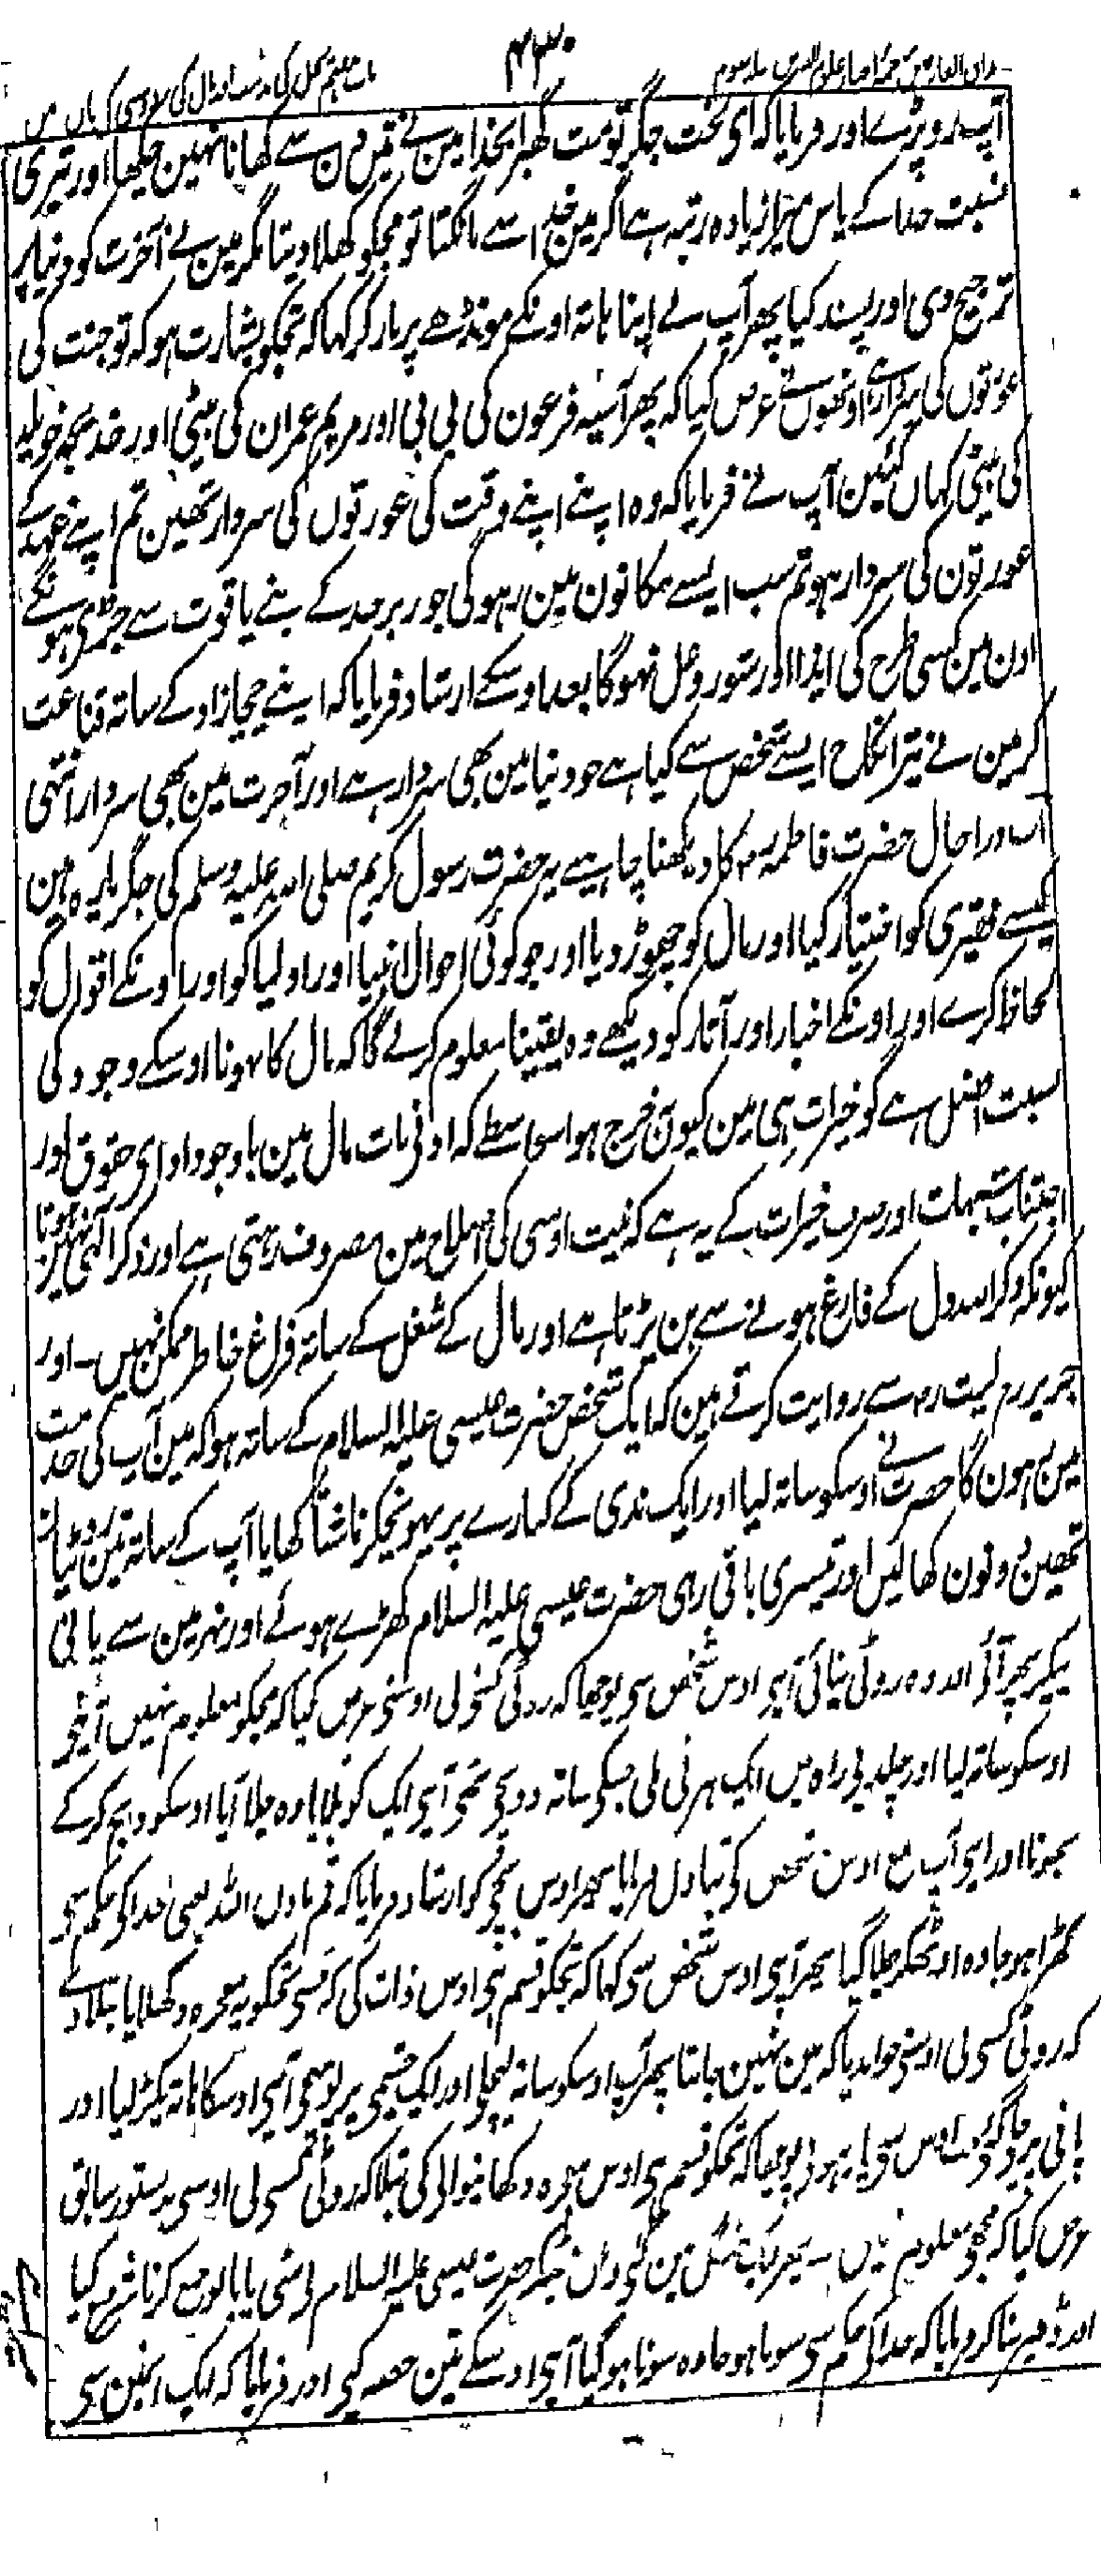 ۴۳۰
باب ہفتم بخل کی مذمت اور مال کی دوستی کے بیان میں
آپ رو پڑے اور فرمایا کہ ای لخت جگر تو مت گھبرا بخدا مین نے تین دن سے کھانا نہین چکھا اور تیری
نسبت خدا کے پاس میرا زیادہ رتبہ ہے اگر مین خدا سے مانگتا تو مجکو کھلا دیتا مگر مین نے آخرت کو دنیا پر
ترجیح دی اور پسند کیا پھر آپ نے اپنا ہاتہ اونکے مونڈھے پر مار کر کہا کہ تجکو بشارت ہو کہ تو جنت کی
عورتوں کی سردار ہے اونھوں نے عرض کیا کہ پھر آسیہ فرعون کی بی بی اور مریم عمران کی بیٹی اور خدیجہ خویلد
کی بیٹی کہاں گئین آپ نے فرمایا کہ وہ اپنے اپنے وقت کی عورتوں کی سردار تھین تم اپنے عہد کے
عورتون کی سردار ہو تم سب ایسے مکانون مین رہوگی جو زبرجد کے بنے یاقوت سے جڑی ہونگے
اون مین کسی طرح کی ایذا اور شور و غل نہوگا بعد اوسکے ارشاد فرمایا کہ اپنے چچازاد کے ساتہ قناعت
کر مین نے تیرا نکاح ایسے شخص سے کیا ہے جو دنیا مین بھی سردار ہے اور آخرت مین بھی سردار انتہی
اب ذرا حال حضرت فاطمہ رض کا دیکھنا چاہیے یہ حضرت رسول کریم صلی اللہ علیہ وسلم کی جگر پارہ ہین
کیسے فقیری کو اختیار کیا اور مال کو چھوڑ دیا اور جو کوئی احوال انبیا اور اولیا کو اور اونکے اقوال کو
لحاظ کرے اور اونکے اخبار اور آثار کو دیکھے وہ یقینا معلوم کر لے گا کہ مال کا نہونا اوسکے وجود کی
نسبت افضل ہے گو خیرات ہی مین کیون نہ خرج ہو اسواسطے کہ ادنی بات مال مین باوجود ادای حقوق اور
اجتناب شبہات اور صرف خیرات کے یہ ہے کہ نیت اوسی کی اصلاح مین مصروف رہتی ہے اور ذکر الہی نہین ہوتا
کیونکہ ذکر اللہ دل کے فارغ ہونے سے بن پڑتا ہے اور مال کے شغل کے ساتہ فراغ خاطر ممکن نہیں ۔ اور
جریر رح لیث رح سے روایت کرتے ہین کہ ایک شخص حضرت عیسی علیہ السلام کے ساتہ ہوا کہ مین آپ کی خدمت
مین رہون گا حضرت نے اوسکو ساتہ لیا اور ایک ندی کے کنارے پر پہونچکر ناشتا کھایا آپ کے ساتہ تین روٹیان
تھین دو تون کھا لیں اور تیسری باقی رہی حضرت عیسی علیہ السلام کھڑے ہوئے اور نہر مین سے پانی
پیکر پھر آئے اور وہ روٹی نپائی آپ نے اوس شخص سے پوچھا کہ روٹی کسنے لی اوسنے عرض کیا کہ مجکو معلوم نہیں آپنے
اوسکو ساتہ لیا اور چلدیے راہ میں ایک ہرنی ملی جسکے ساتہ دو بچے تھے آپنے ایک کو بلایا وہ چلا آیا اوسکو ذبح کر کے
بھونا اور آپ نے مع اوس شخص کے تناول فرمایا پھر اوس بچے کو ارشاد فرمایا کہ قم باذن اللہ یعنی خدا کے حکم سے
کھڑا ہو جا وہ اوٹھکر چلا گیا پھر آپنے اوس شخص سے کہا کہ تجکو قسم ہے اوس ذات کی کہ جسنے تجکو یہ معجزہ دکھلایا بتلا دے
کہ روٹی کسنے لی اوسنے جواب دیا کہ مین نہین جانتا پھر آپ اوسکو ساتہ لیچلے اور ایک چشمے پر پہونچے آپنے اوسکا ہاتہ پکڑ لیا اور
پانی پر اوس سے پار ہوئے پوچھا کہ تجکو قسم ہے اوس معجزہ دکھانیوالے کی بتلا کہ روٹی کسنے لی اوسنے بدستور سابق
عرض کیا کہ مجھے معلوم نہیں ۔ پھر ایک جنگل مین گئے وہاں بیٹھکر حضرت عیسی علیہ السلام نے مٹی یا بالو جمع کرنا شروع کیا
اور ڈھیر بنا کر فرمایا کہ خدا کے حکم سے سونا ہو جا وہ سونا ہو گیا آپنے اوسکے تین حصہ کیے اور فرمایا کہ ایک انمین سے